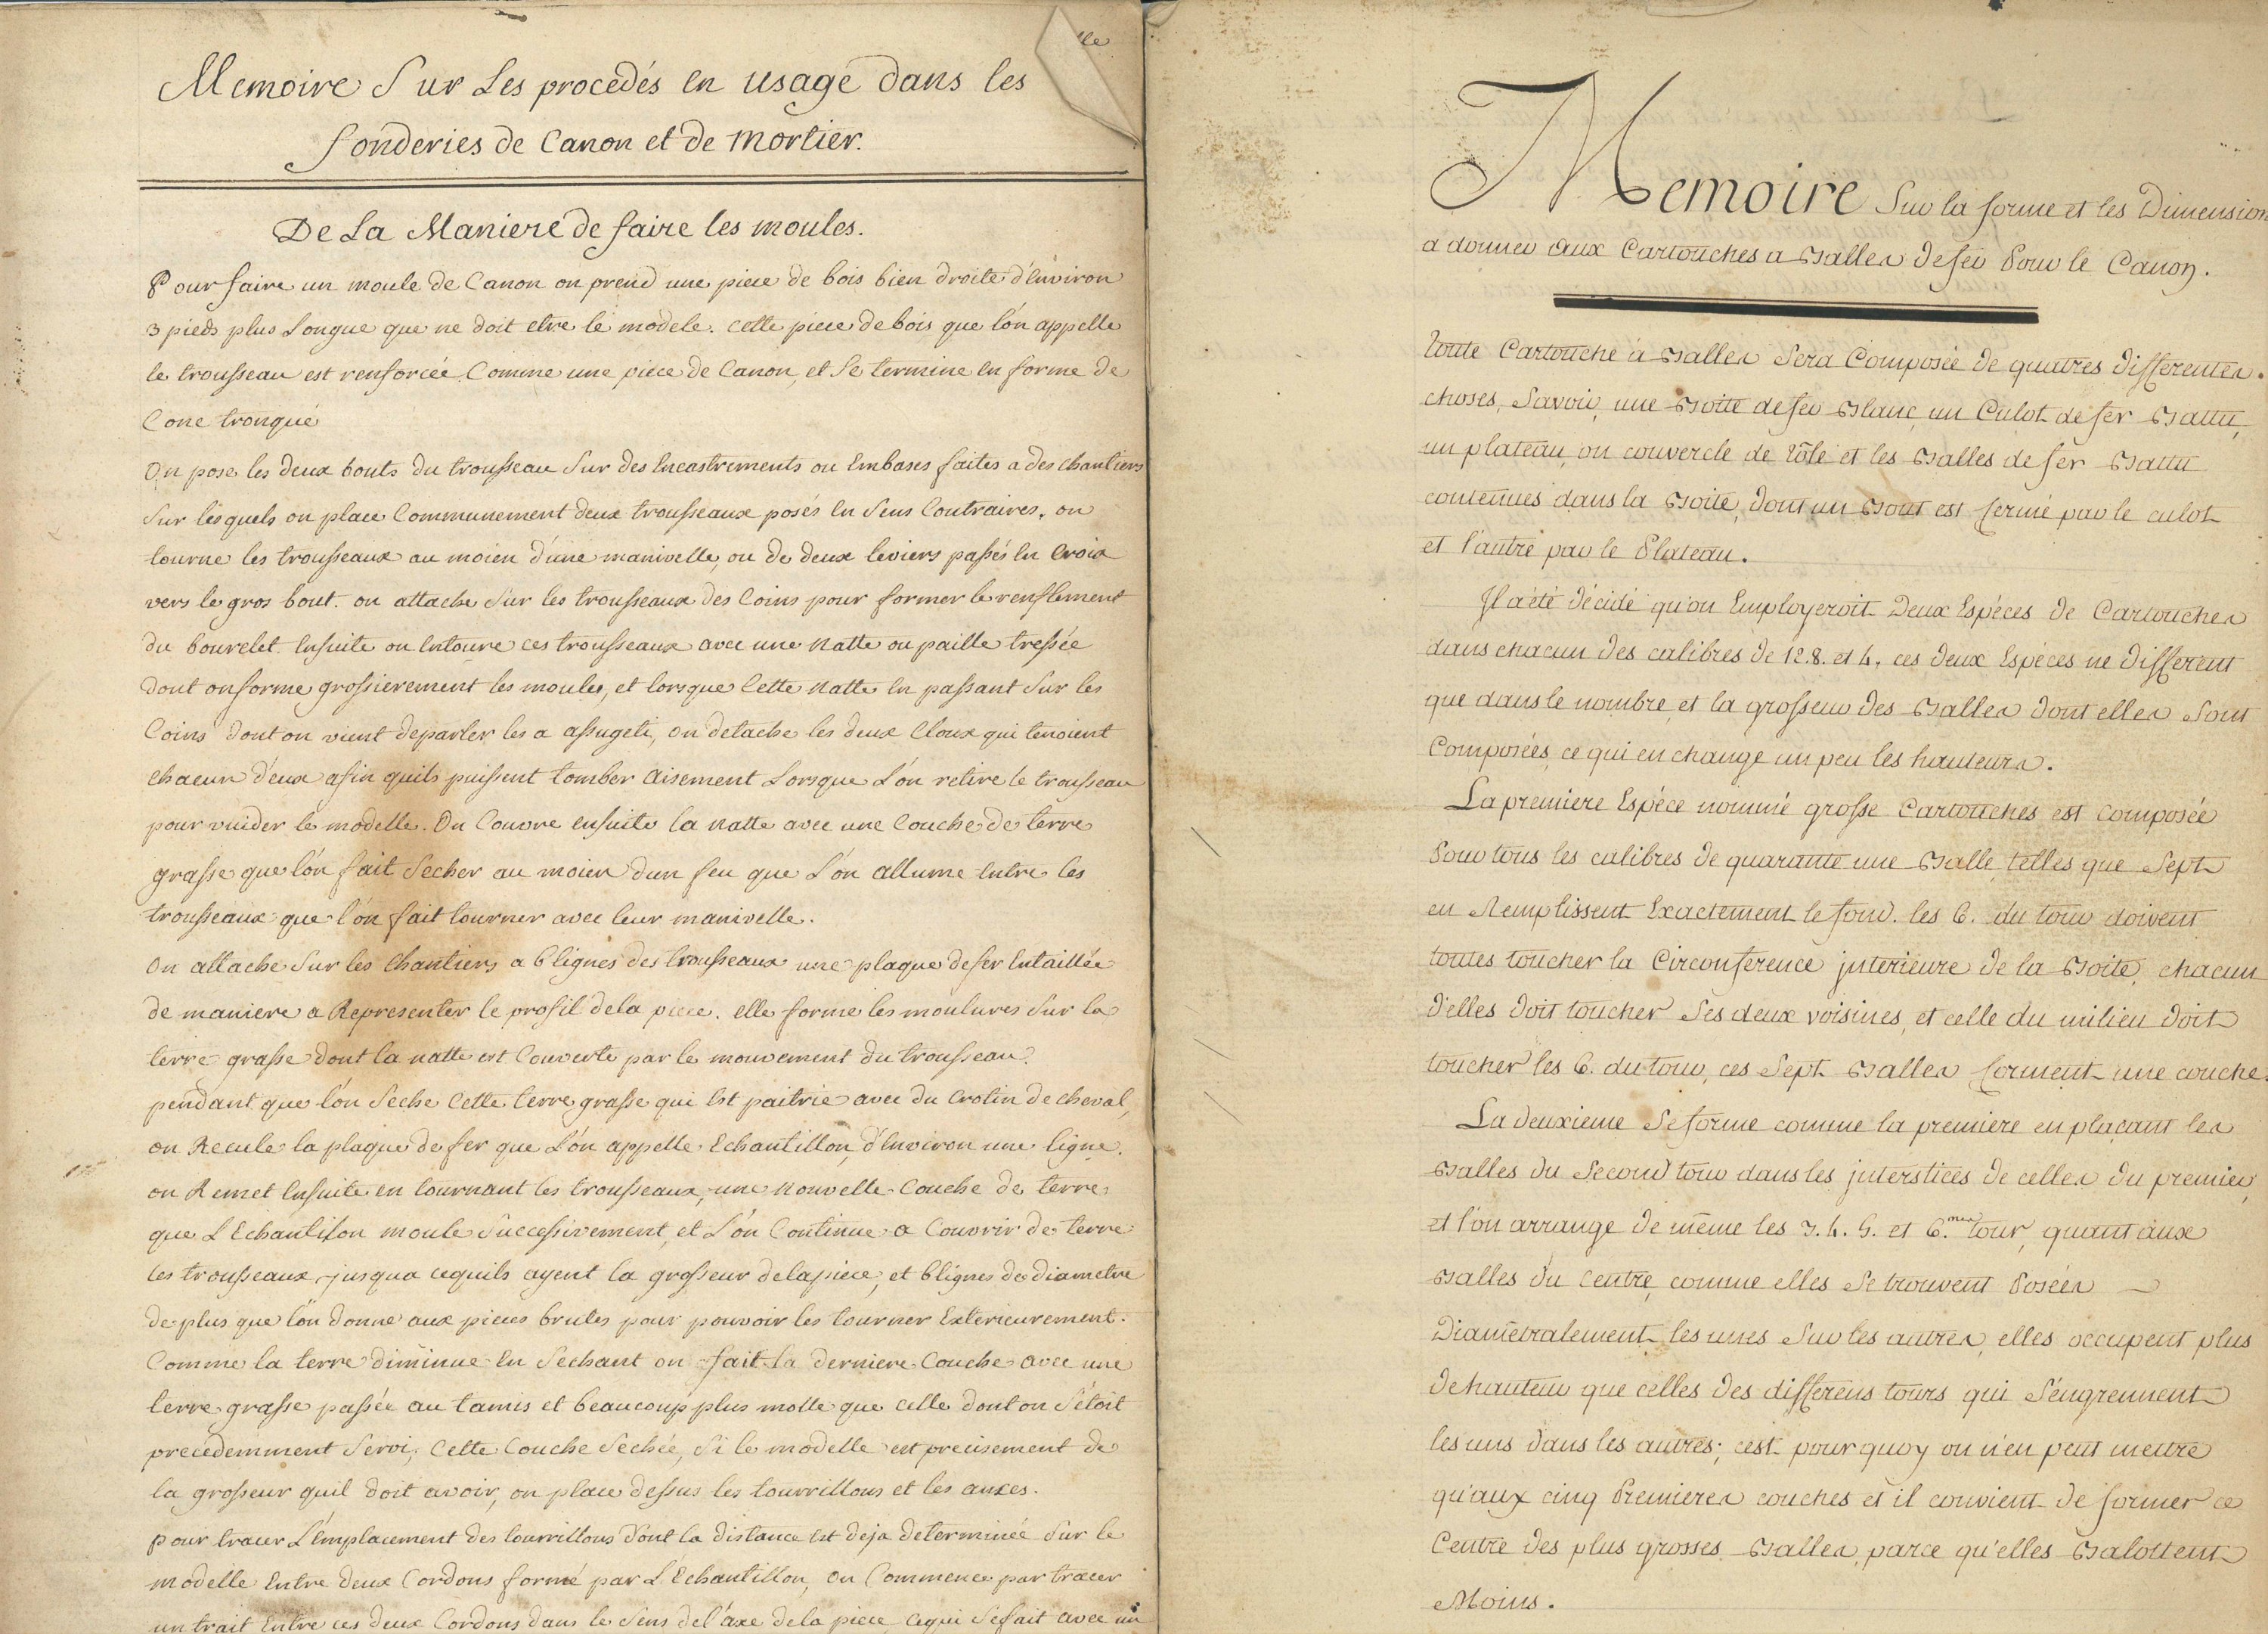 lle
Memoire Sur Les procedés en usage dans les
fonderies de Canon et de mortier.
De La Maniere de faire les moules.
Pour faire un moule de Canon on prend une piece de bois bien droite d'environ
3 pieds plus Longue que ne doit etre le modele. cette piece de bois que l'on appelle
le trousseau est renforcée Comme une piece de Canon, et Se termine en forme de
Cone tronqué
On pose les deux bouts du trousseau Sur des Encastrements ou Embases faites a des chantiers
Sur lesquels on place Communement deux trousseaux posés en Sens Contraires, on
tourne les trousseaux au moien d'une manivelle, ou de deux leviers passés en Croix
vers le gros bout. on attache Sur les trousseaux des Coins pour former le renflement
du bourelet. Ensuite on Entoure ces trousseaux avec une natte ou paille tressée
dont on forme grossierement les moules, et lorsque Cette natte en passant Sur les
Coins dont on vient de parler, les a assugeti, on detache les deux Cloux qui tenoient
chacun d'eux afin quils puissent tomber aisement Lorsque L'on retire le trousseau
pour vuider le modelle. On Couvre ensuite la natte avec une Couche de terre
grasse que l'on fait Secher au moien d'un feu que L'on allume entre les
trousseaux que l'on fait tourner avec leur manivelle.
On attache Sur les Chantiers a 6 lignes des trousseaux une plaque de fer Entaillée
de maniere a Representer le profil de la piece. elle forme les moulures Sur la
terre grasse dont la natte est Couverte par le mouvement du trousseau.
pendant que l'on Seche Cette terre grasse qui Est paitrie avec du Crotin de cheval,
on Recule la plaque de fer que L'on appelle Echantillon, d'Environ une ligne.
on Remet Ensuite en tournant les trousseaux, une Nouvelle Couche de terre
que L'Echantillon moule Successivement, et L'on Continue a Couvrir de terre
les trousseaux jusqua cequils ayent la grosseur de la piece, et 6 lignes de diametre
de plus que l'on donne aux pieces brutes pour pouvoir les tourner Exterieurement.
Comme la terre diminue En Sechant on fait la derniere Couche avec une
terre grasse passée au tamis et beaucoup plus molle que celle dont on S'étoit
precedemment Servi; Cette Couche Sechée, Si le modelle est precisement de
la grosseur quil doit avoir, on place dessus les tourrillons et les anses.
pour tracer L'Emplacement des tourrillons dont la distance Est deja determinée Sur le
modelle Entre deux Cordons formé par L'Echantillon, on Commence par tracer
un trait Entre ces deux Cordons dans le Sens de l'axe de la piece, cequi Se fait avec un
Memoire Sur la forme et les Dimension
a donner aux Cartouches a Balles de fer Pour le Canon.
Toute Cartouche à Balles Sera Composée de quatres differentes
choses, Savoir, une Boite de fer Blanc, un Culot de fer Battu,
un plateau, ou couvercle de Tôle et les Balles de fer Battu
contenues dans la Boite, dont un Bout est fermé par le culot
et l'autre par le Plateau.
Il a été décidé qu'on Employeroit Deux Espéces de Cartouches
dans chacun des calibres de 12. 8. et 4, ces deux Espéces ne different
que dans le nombre et la grosseur des Balles dont elles Sont
Composées, ce qui en change un peu les hauteurs.
La premiere Espéce nommé grosse Cartouches est composée
Pour tous les calibres de quarante une Balle, telles que Sept
en Remplissent Exactement le fond. les 6. du tour doivent
toutes toucher la Circonference jnterieure de la Boite, chacun
d'elles doit toucher Ses deux voisines, et celle du milieu doit
toucher les 6. du tour, ces Sept Balles forment une couche.
La deuxieme Se forme comme la premiere en plaçant les
Balles du Second tour dans les jnterstices de celles du premier,
et l'on arrange de même les 3. 4. 5. et 6.mes tour, quant aux
Balles du Centre, comme elles Se trouvent Posées
Diametralement les unes Sur les autres, elles occupent plus
de hauteur que celles des differens tours qui S'engrennent
les uns dans les autres; c'est pourquoy on n'en peut mettre
qu'aux cinq Premieres couches et il convient de former ce
Centre des plus grosses Balles, parce qu'elles Balottent
Moins.